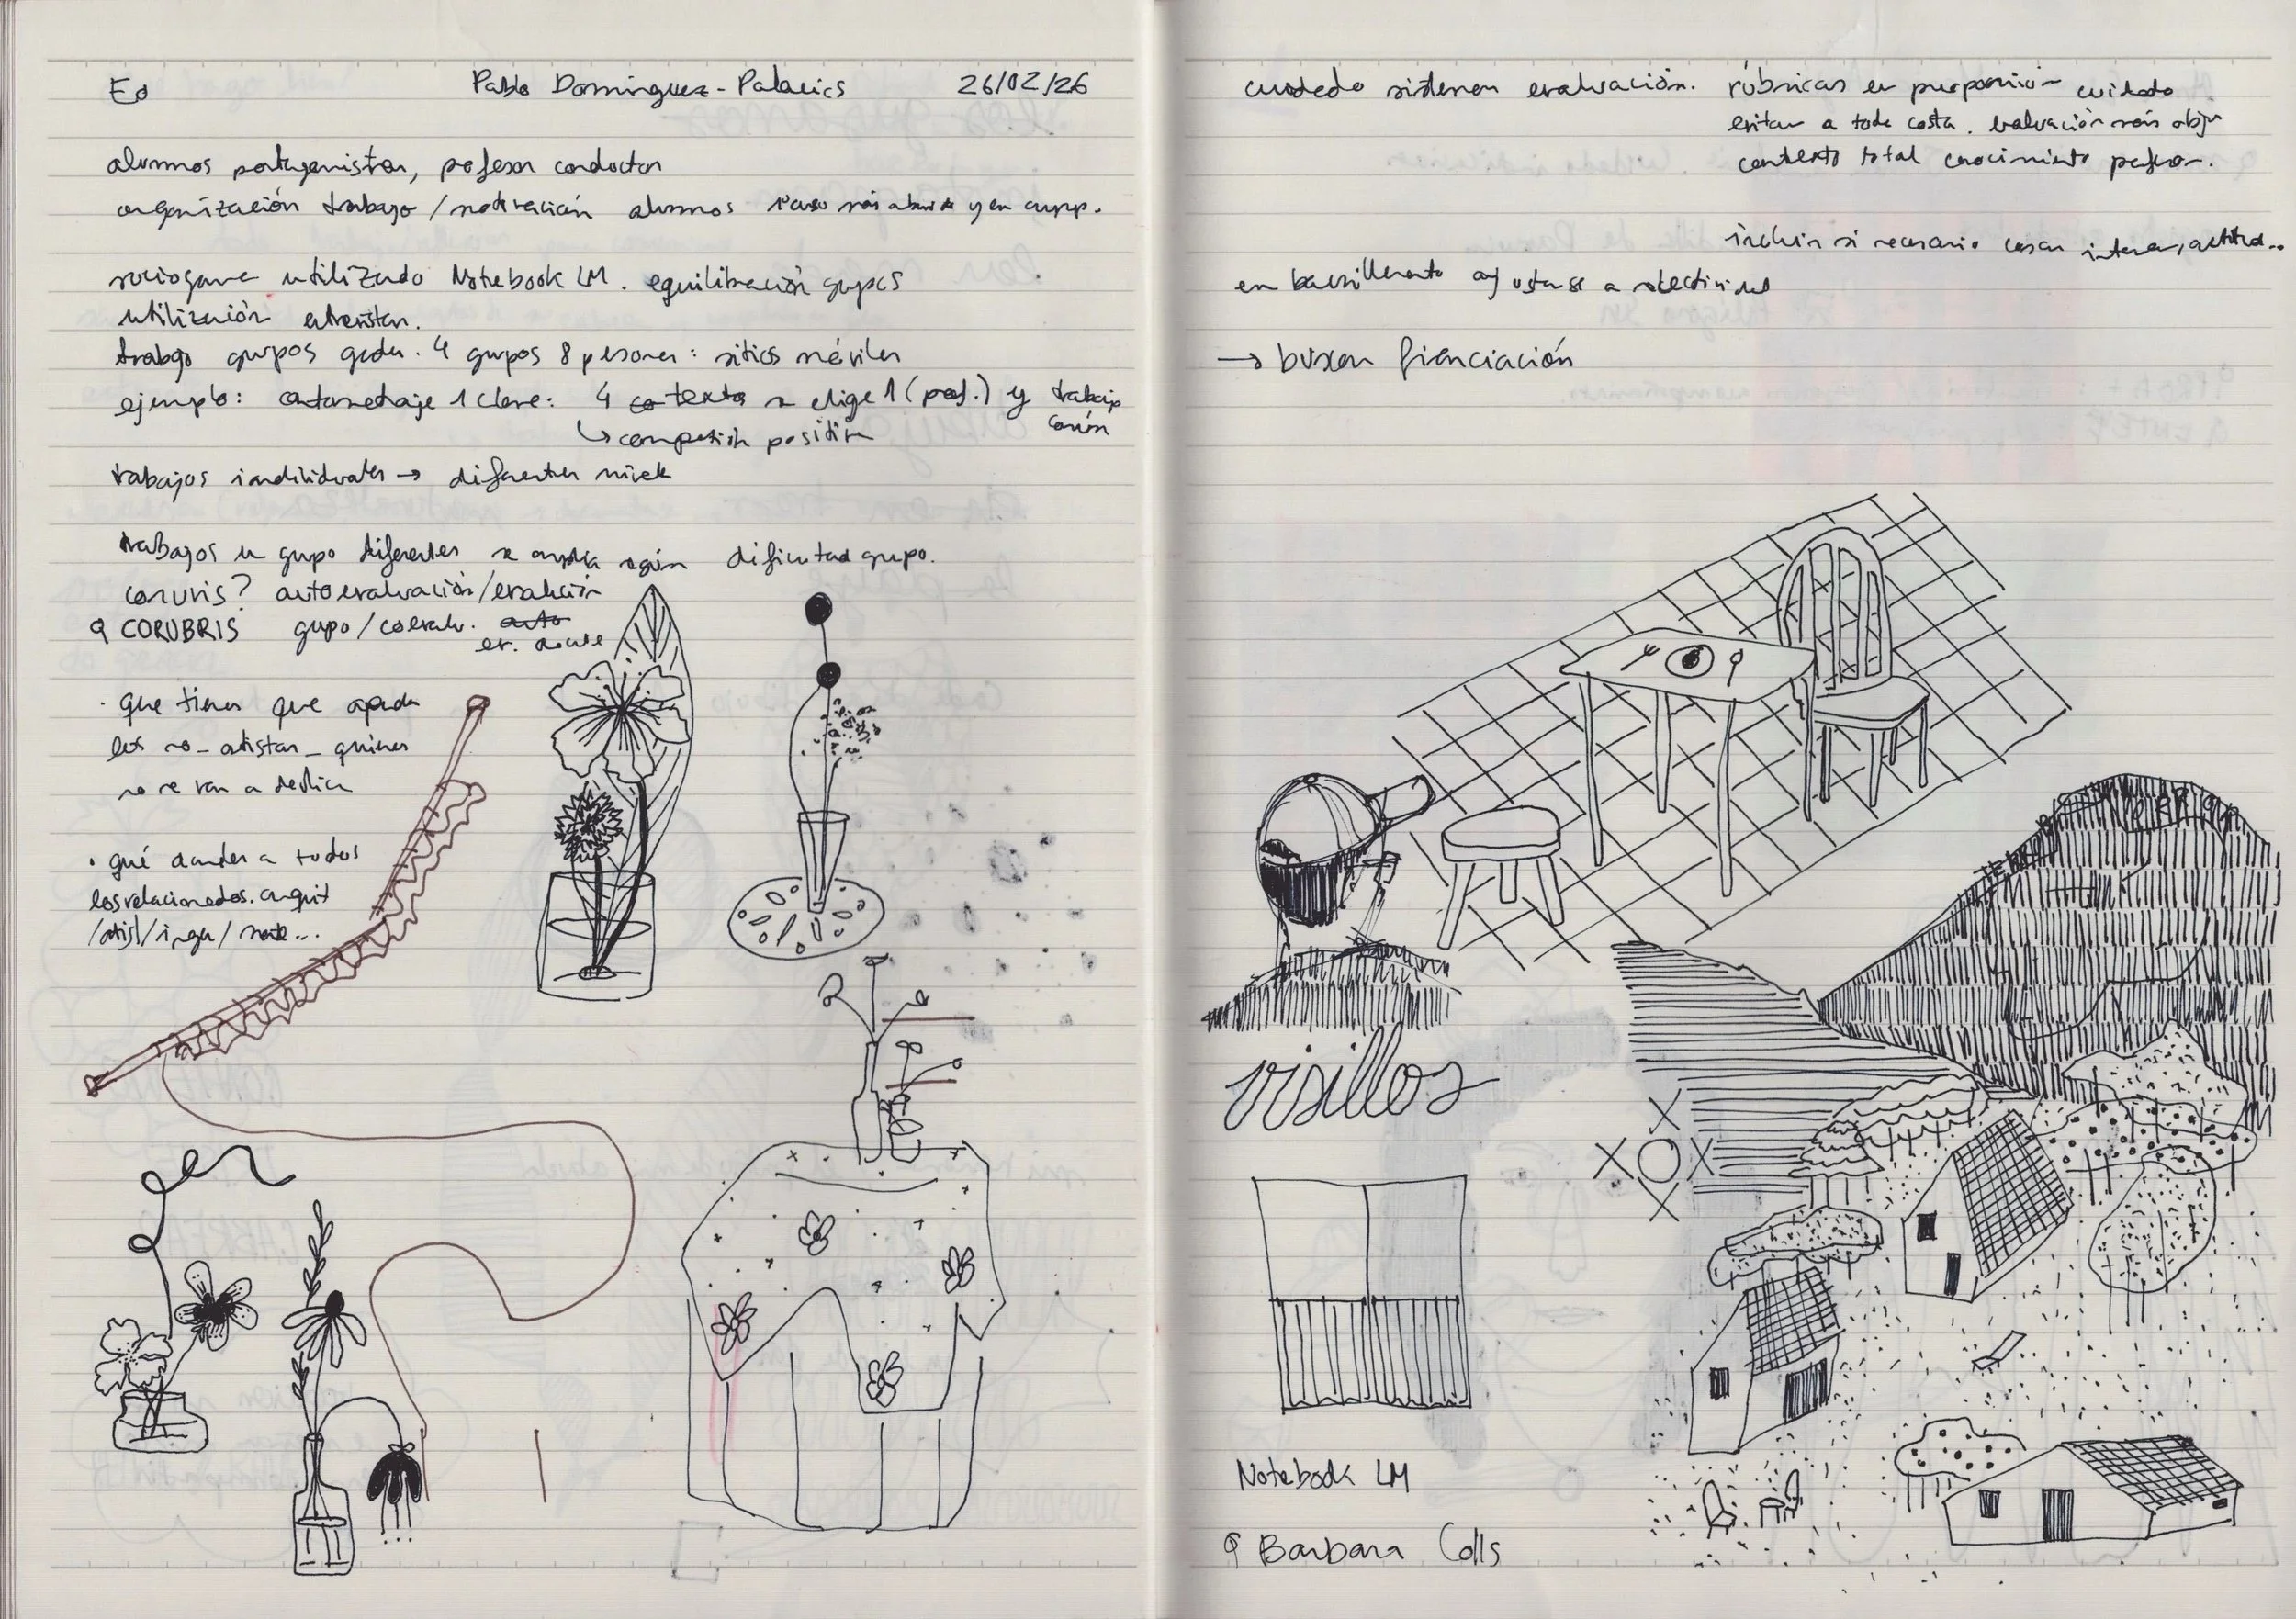 Eo Pablo Domínguez-Palacios 26/02/26
alumnos protagonistas, profesor conductor
organización trabajo / motivación alumnos 1º curso más aburrido y en grupp.
sociograma utilizando Notebook LM. equilibración grupos
utilización entrevistas.
trabajo grupos grades. 4 grupos 8 personas: sitios móviles
ejemplo: cortometraje 1 clase: 4 textos se elige 1 (prof.) y trabajo
común
↳ competición positiva
trabajos individuales → diferentes niveles
trabajos en grupo diferentes se amplía según dificultad grupo.
corubris? autoevaluación/evaluación
CORUBRIS grupo/coevalu. auto
ev. docente
· que tienen que aprender
los no-artistas_quienes
no se van a dedicar
· qué a todos
los relacionados. arquit
/artis/inge/
cuidado sistemas evaluación. rúbricas en proporción cuidado
evitar a toda costa. evaluación más obje
contexto total conocimiento profesor.
incluir si necesario cosas interés, actitud...
en bachillerato ajustarse a selectividad
→ buscar financiación
visillos
X
X O X
X
Notebook LM
Barbara Colls